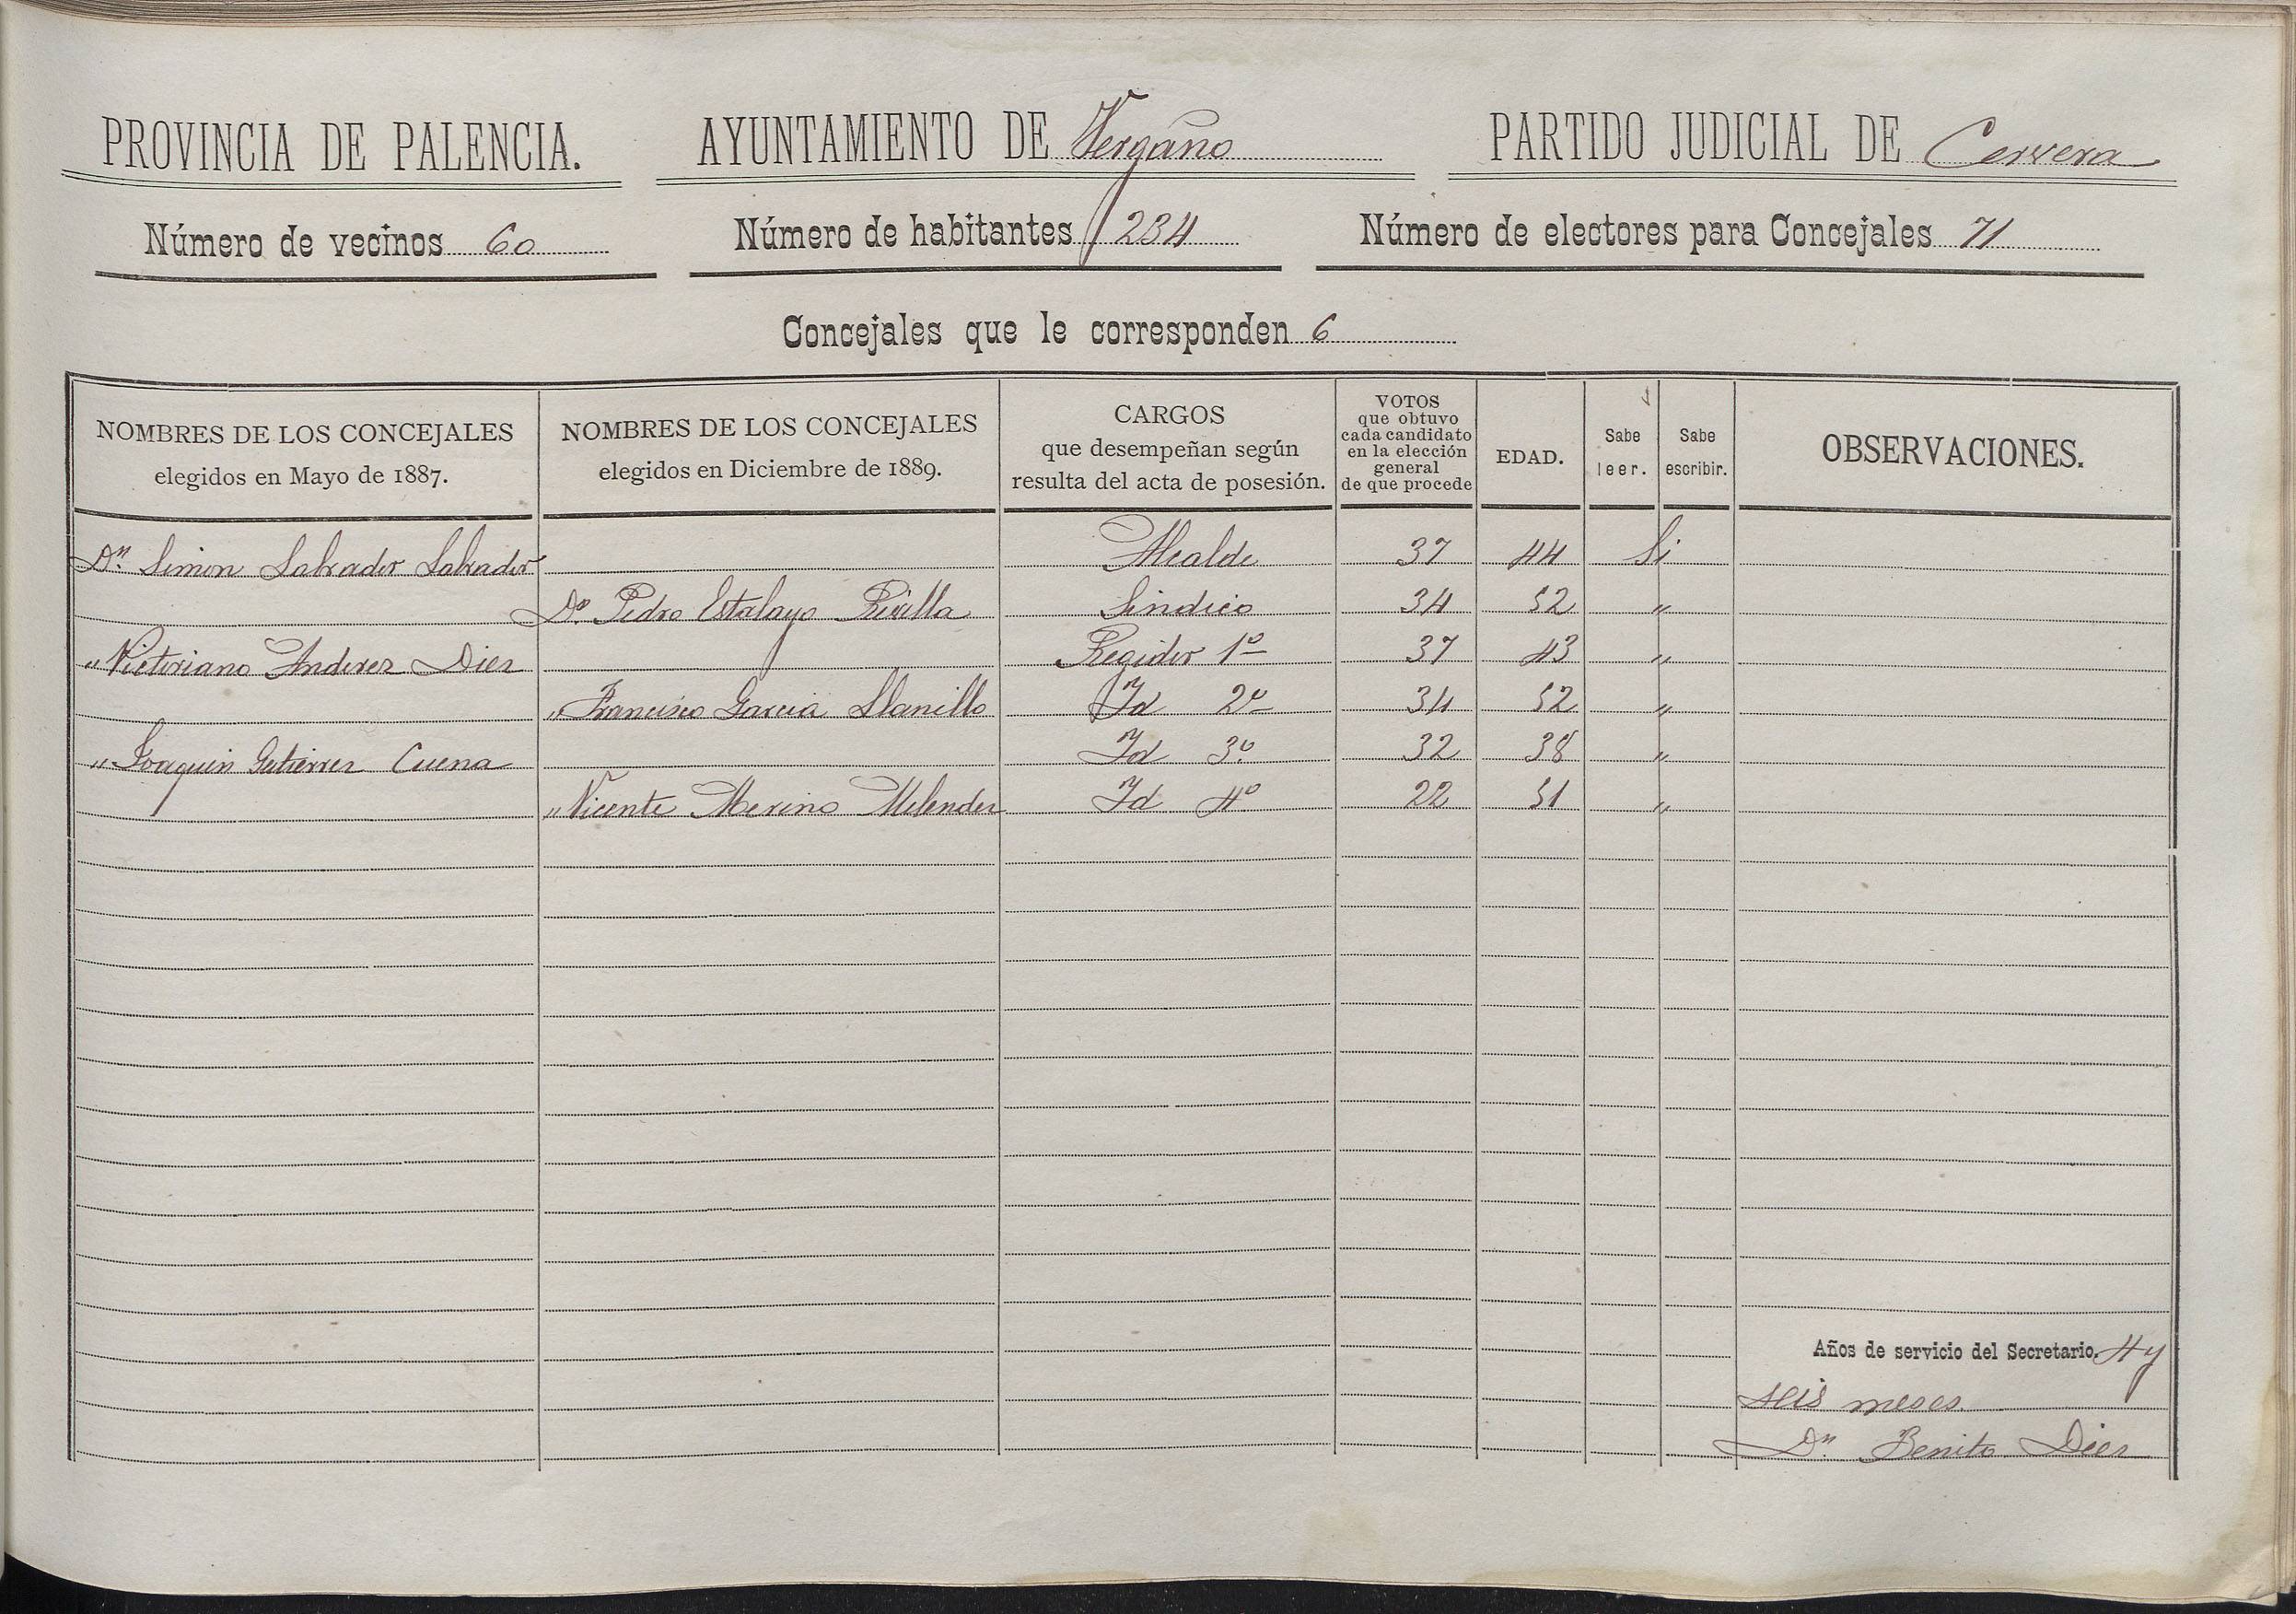 PROVINCIA DE PALENCIA. AYUNTAMIENTO DE Vergaño PARTIDO JUDICIAL DE Cervera
Número de vecinos 60 Número de habitantes 234 Número de electores para Concejales 71
Concejales que le corresponden 6
NOMBRES DE LOS CONCEJALES
elegidos en Mayo de 1887.
NOMBRES DE LOS CONCEJALES
elegidos en Diciembre de 1889.
CARGOS
que desempeñan según
resulta del acta de posesión.
VOTOS
que obtuvo
cada candidato
en la elección
general
de que procede
EDAD.
Sabe
leer.
Sabe
escribir.
OBSERVACIONES.
Dn. Simon Labrador Labrador Alcalde 37 44 Si
Dn. Pedro Estalayo Rivilla Sindico 34 52 "
" Victoriano Anderez Diez Regidor 1º 37 43 "
" Francisco Garcia Llanillo Id 2º 34 52 "
" Joaquin Gutierrez Cuena Id 3º. 32 38 "
" Vicente Merino Melendez Id 4º 22 51 "
Años de servicio del Secretario. 4 y
seis meses.
Dn. Benito Diez